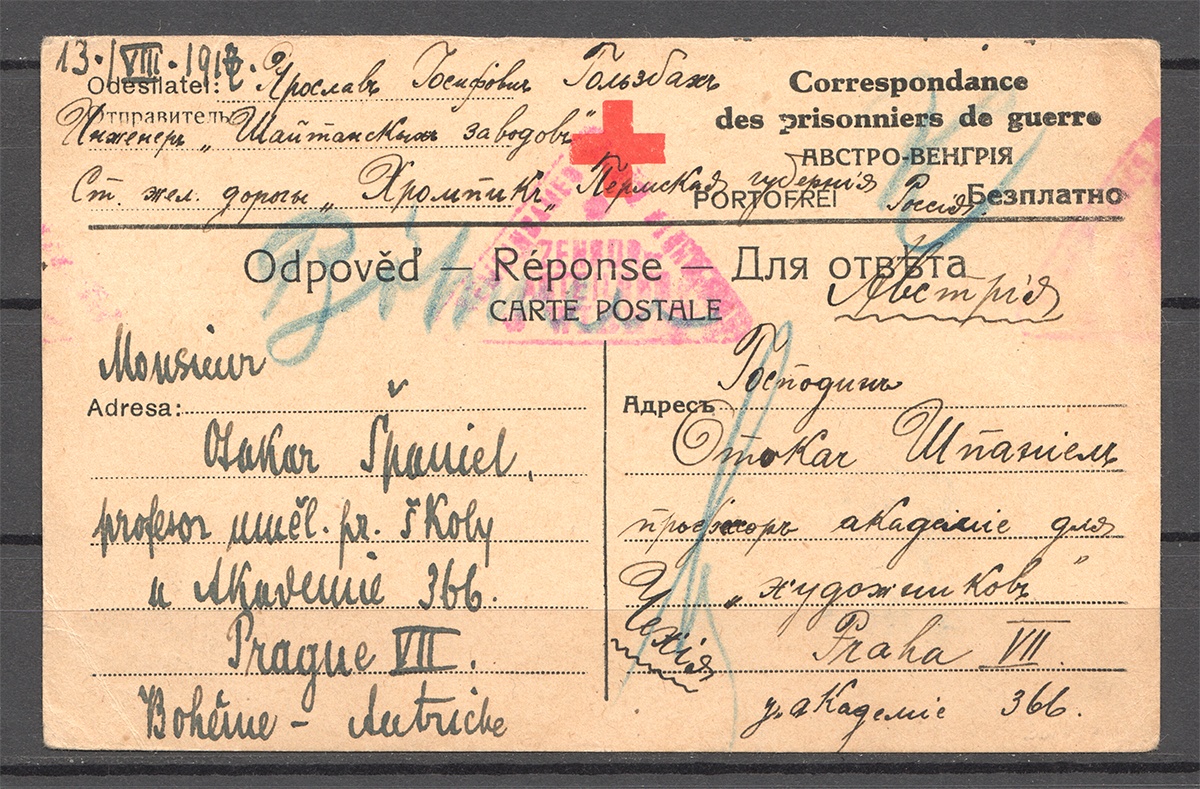 13./VIII.-1917.
Odesílatel: Ярославъ Іосифовичъ Гользбахъ
Отправитель:
Инженеръ „Шайтанскихъ заводовъ"
Ст. жел. дороги „Хромпикъ„ Пермская губернія Россія.
Correspondance
des prisonniers de guerre
АВСТРО-ВЕНГРІЯ
PORTOFREI Безплатно
Odpověď — Réponse — Для отвѣта
CARTE POSTALE
Австрія
Böhmen
Monsieur
Adresa:
Otakar Španiel,
profesor uměl. pr. školy
u Akademie 366.
Prague VII.
Bohême - Autriche
Господинъ
Адресъ
Отокаръ Шпаніелъ
професоръ академіе для
„художниковъ"
Чехія
Praha VII.
у академіе 366.